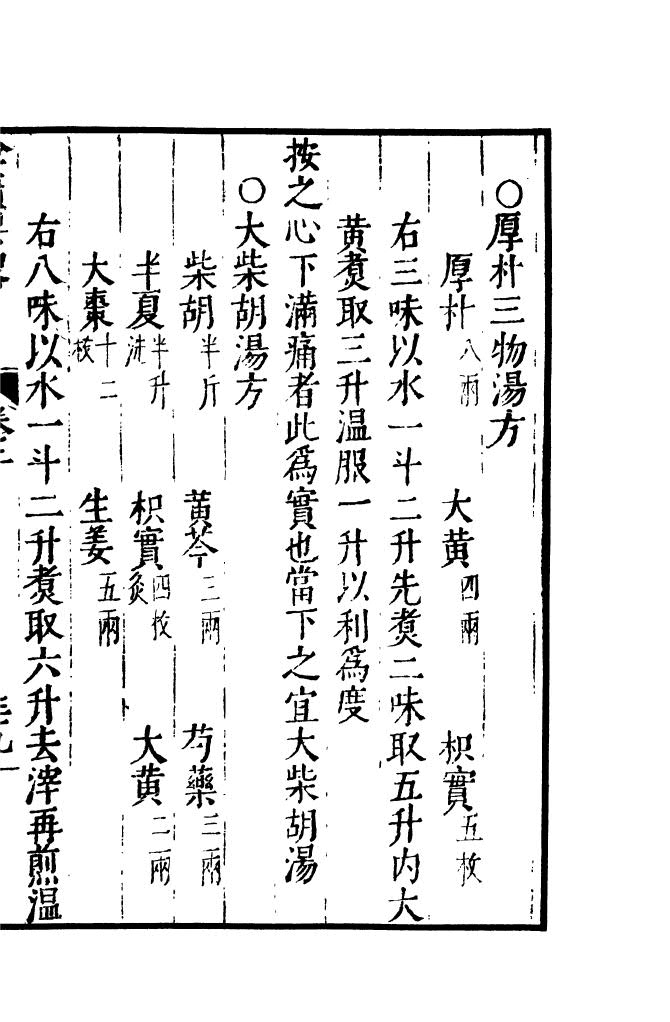 ○厚朴三物湯方
厚朴八兩 大黃四兩 枳實五枚
右三味以水一斗二升先煑二味取五升內大
黃煑取三升温服一升以利爲度
按之心下滿痛者此爲實也當下之宜大柴胡湯
○大柴胡湯方
柴胡半斤 黃芩三兩 芍藥三兩
半夏半升洗 枳實四枚炙 大黃二兩
大棗十二枚 生姜五兩
右八味以水一斗二升煑取六升去滓再煎温